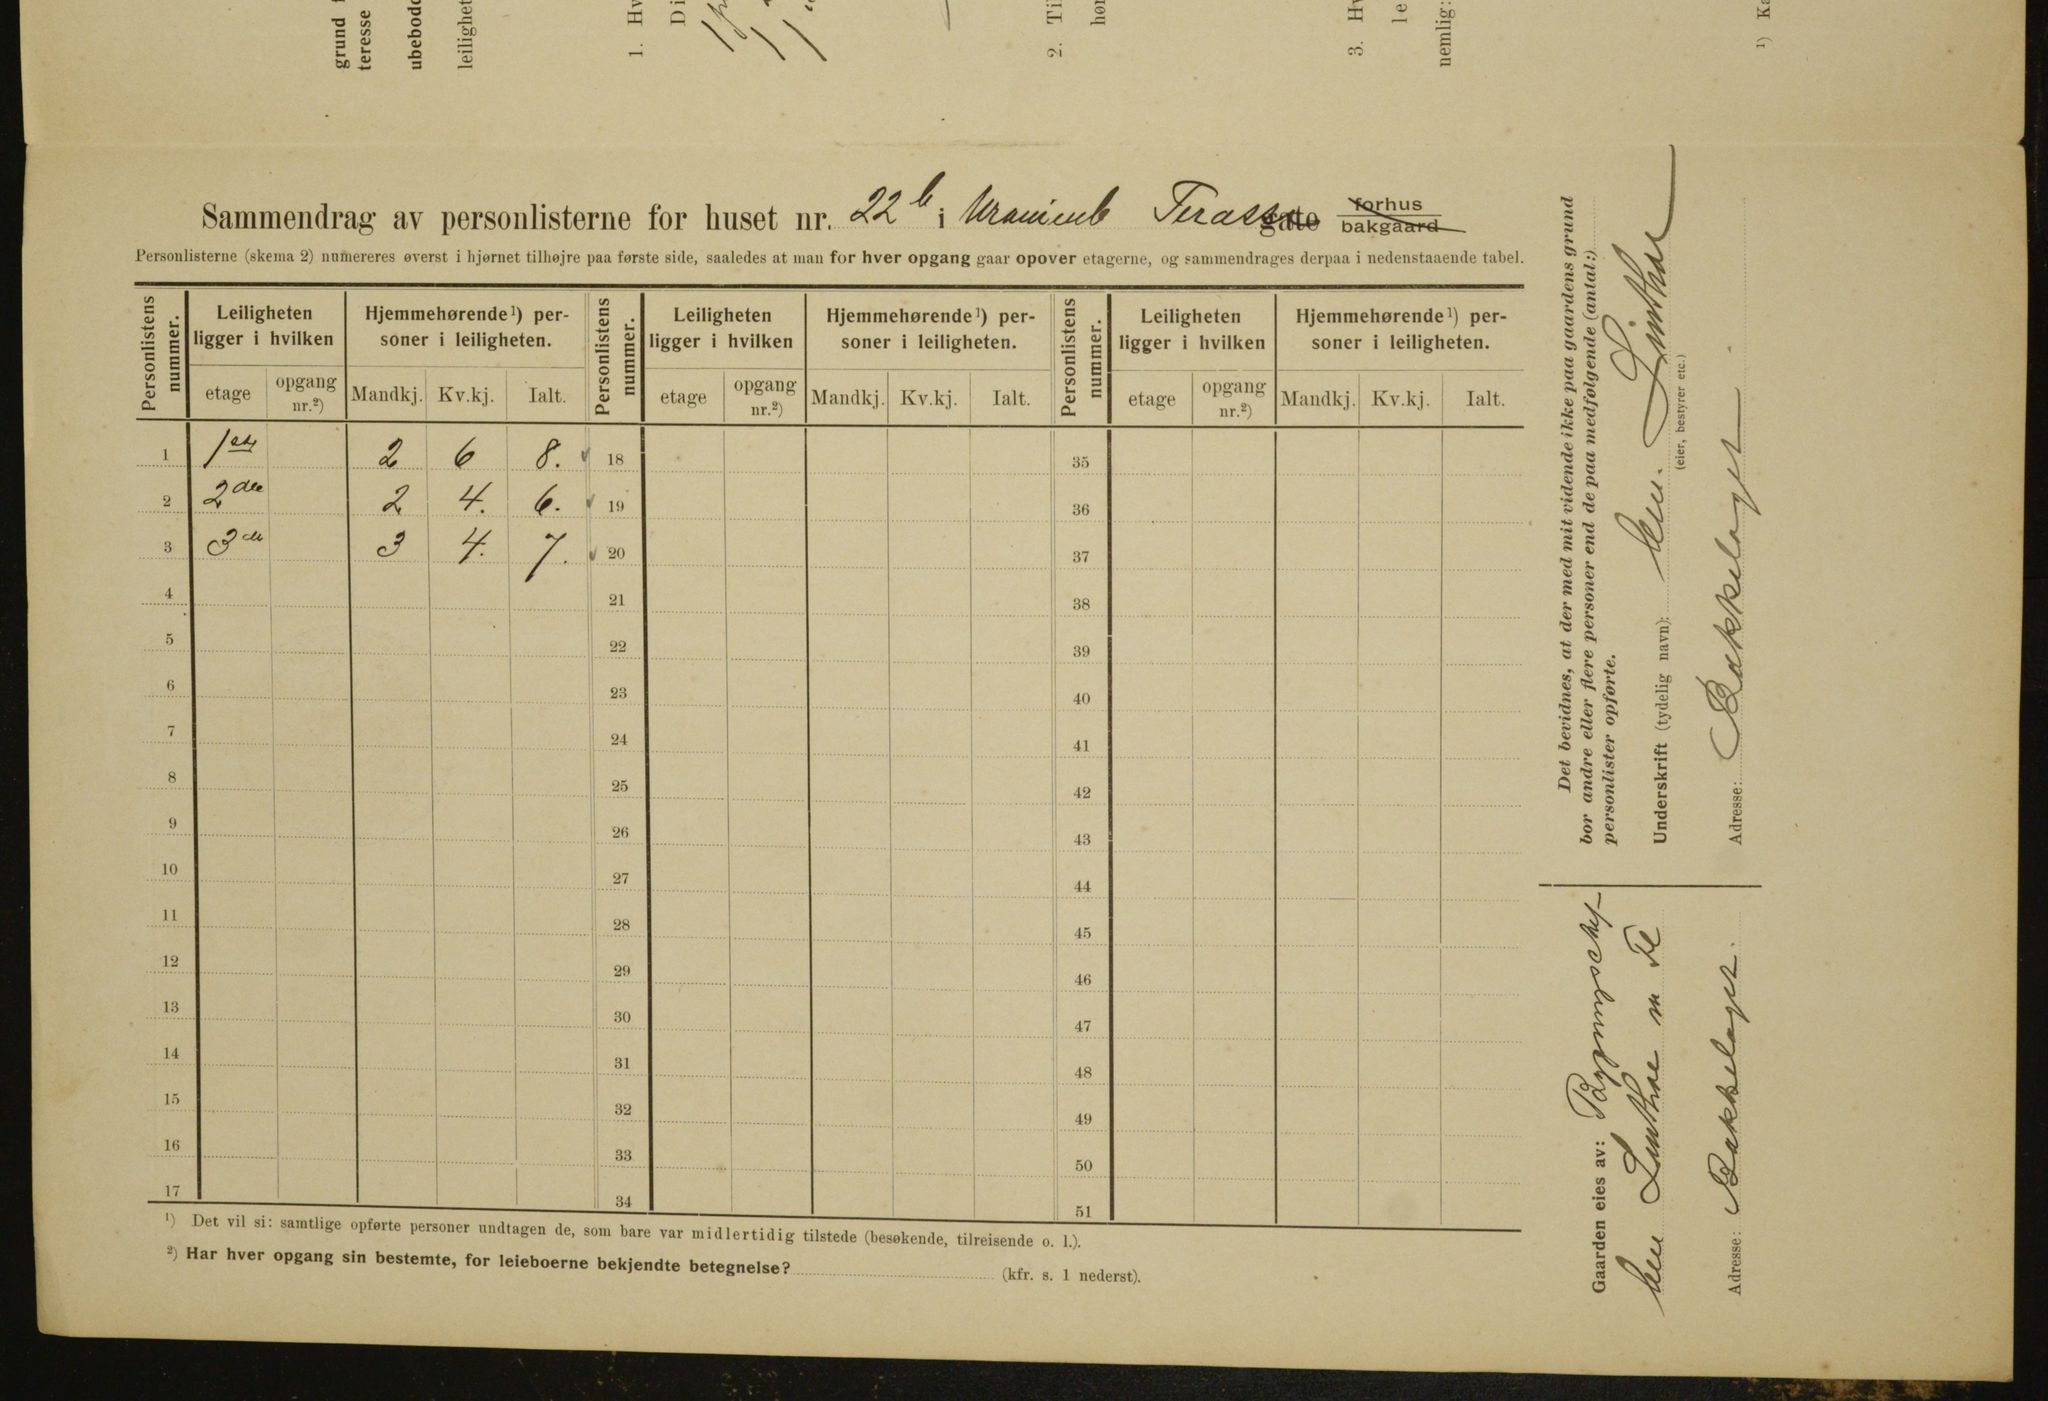 grund
teresse
ubebodd
leilighet
1. Hv
Di
2. Til
hør
3. Hv
le
nemlig:
¹) Ka
Sammendrag av personlisterne for huset nr. 22 b i Uranienb Terasse gate forhus bakgaard
Personlisterne (skema 2) numereres øverst i hjørnet tilhøjre paa første side, saaledes at man for hver opgang gaar opover etagerne, og sammendrages derpaa i nedenstaaende tabel.
Personlistens nummer. Leiligheten ligger i hvilken Hjemmehørende¹) personer i leiligheten. Personlistens nummer. Leiligheten ligger i hvilken Hjemmehørende¹) personer i leiligheten. Personlistens nummer. Leiligheten ligger i hvilken Hjemmehørende¹) personer i leiligheten.
etage opgang nr.²) Mandkj. Kv.kj. Ialt. etage opgang nr.²) Mandkj. Kv.kj. Ialt. etage opgang nr.²) Mandkj. Kv.kj. Ialt.
1 1ste 2 6 8. 18 35
2 2den 2 4. 6. 19 36
3 3die 3 4. 7. 20 37
4 21 38
5 22 39
6 23 40
7 24 41
8 25 42
9 26 43
10 27 44
11 28 45
12 29 46
13 30 47
14 31 48
15 32 49
16 33 50
17 34 51
¹) Det vil si: samtlige opførte personer undtagen de, som bare var midlertidig tilstede (besøkende, tilreisende o. l.).
²) Har hver opgang sin bestemte, for leieboerne bekjendte betegnelse? (kfr. s. 1 nederst).
Det bevidnes, at der med mit vidende ikke paa gaardens grund
bor andre eller flere personer end de paa medfølgende (antal:)
personlister opførte.
Underskrift (tydelig navn):
(eier, bestyrer etc.)
Adresse: Bækkelaget.
Gaarden eies av:
Adresse: Bækkelaget.